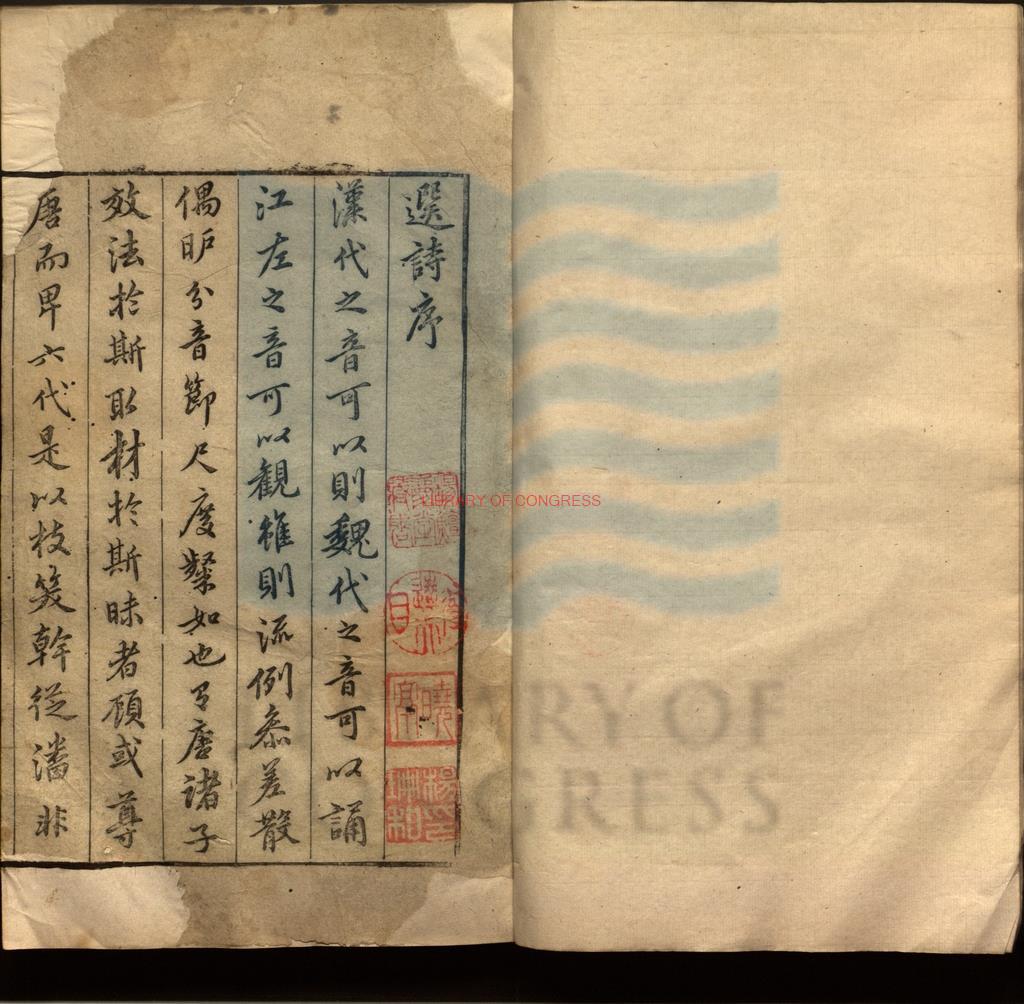 選詩序
漢代之音可以則魏代之音可以誦
江左之音可以觀雖則流例叅差散
偶昈分音節尺度粲如也有唐諸子
效法於斯取材於斯昧者顧或尊
唐而卑六代是以枝笑幹從潘非
LIBRARY OF CONGRESS
LIBRARY OF
CONGRESS